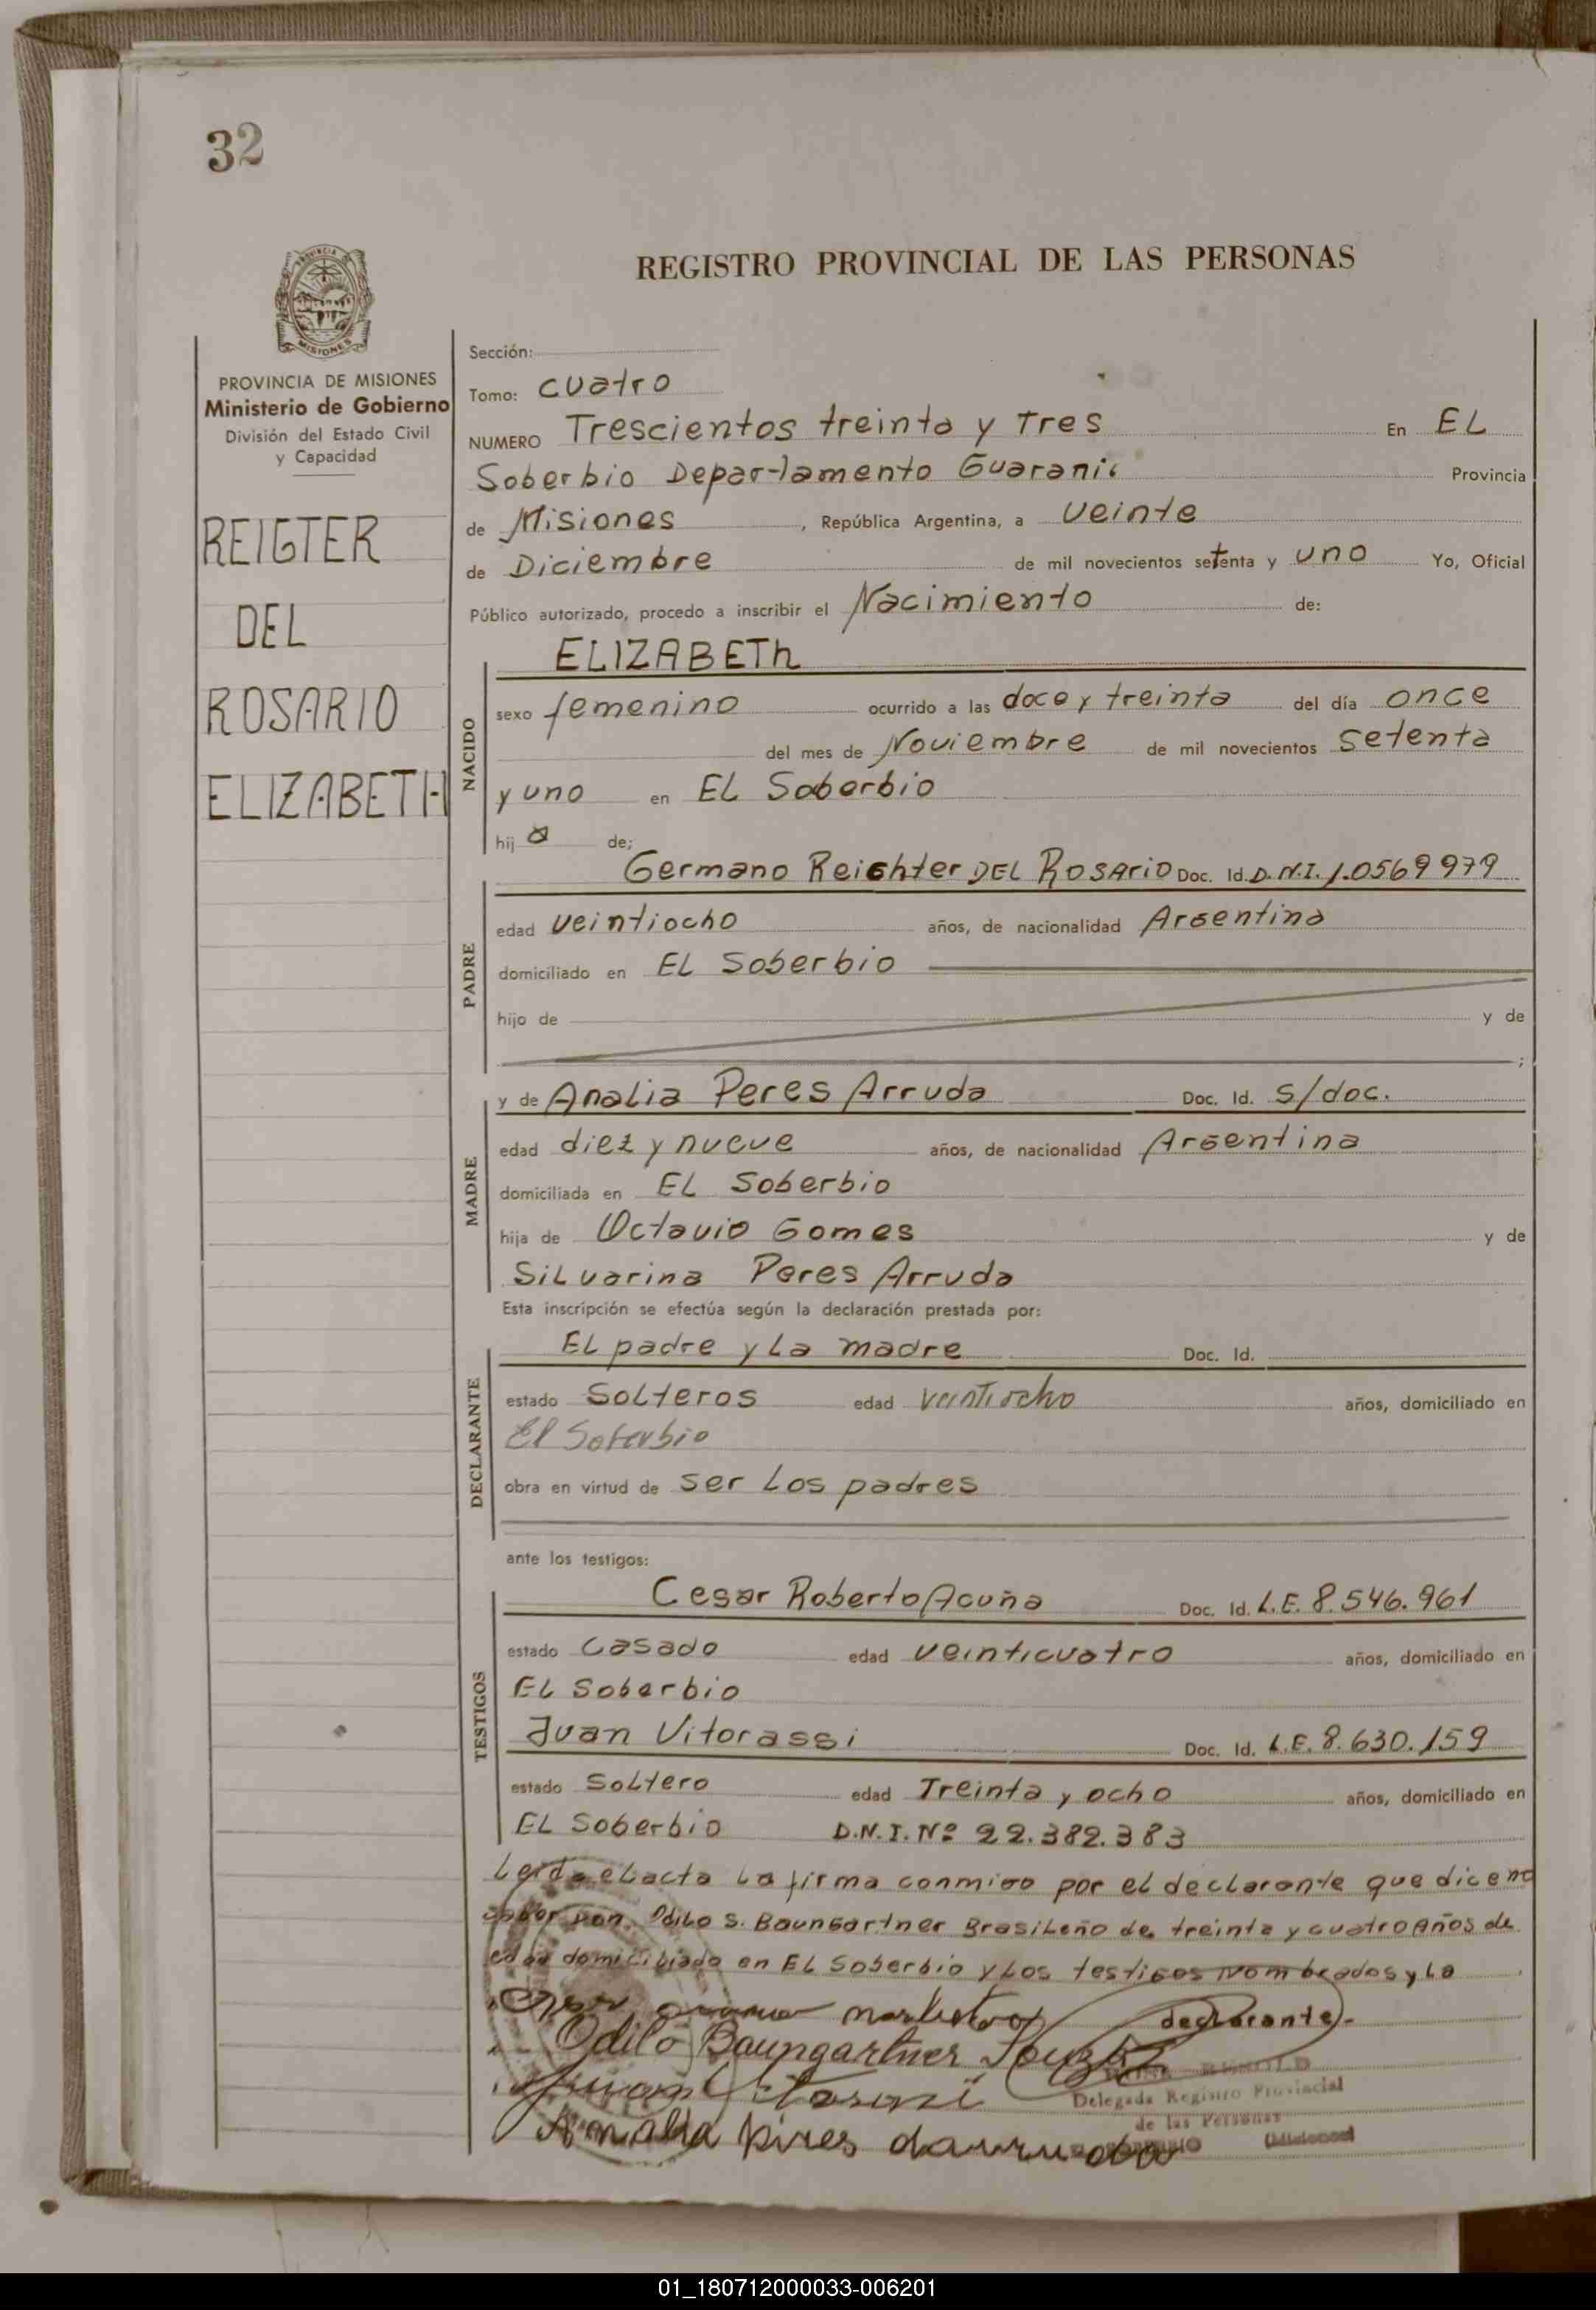 32
REGISTRO PROVINCIAL DE LAS PERSONAS
PROVINCIA
MISIONES
PROVINCIA DE MISIONES
Ministerio de Gobierno
División del Estado Civil
y Capacidad
REIGTER
DEL
ROSARIO
ELIZABETH
Sección:
Tomo: Cuatro
NUMERO Trescientos treinta y Tres En EL
Soberbio Departamento Guarani Provincia
de Misiones, República Argentina, a veinte
de Diciembre de mil novecientos setenta y uno Yo, Oficial
Público autorizado, procedo a inscribir el Nacimiento de:
NACIDO
ELIZABETh
sexo femenino ocurrido a las doce y treinta del día once
del mes de Noviembre de mil novecientos setenta
y uno en EL Soberbio
hija de;
PADRE
Germano Reichter DEL ROSARIO Doc. Id. D.N.I. 1.0569979
edad veintiocho años, de nacionalidad Argentina
domiciliado en EL Soberbio
hijo de y de
;
MADRE
y de Analia Peres Arruda Doc. Id. S/doc.
edad diez y nueve años, de nacionalidad Argentina
domiciliada en EL Soberbio
hija de Octavio Gomes y de
Silvarina Peres Arruda
Esta inscripción se efectúa según la declaración prestada por:
DECLARANTE
EL padre y La madre Doc. Id.
estado Solteros edad veintiocho años, domiciliado en
El Soberbio
obra en virtud de ser Los padres
ante los testigos:
TESTIGOS
Cesar Roberto Acuña Doc. Id. L.E. 8.546.961
estado Casado edad veinticuatro años, domiciliado en
EL Soberbio
Juan Vitorassi Doc. Id. L.E. 8.630.159
estado Soltero edad Treinta y ocho años, domiciliado en
EL Soberbio D.N.I. Nº 22.382.383
Leida el acta La firma conmigo por el declarante que dice no
Odilo S. Baungartner Brasileño de treinta y cuatro Años de
edad domiciliado en EL Soberbio y Los testigos Nombrados y La
declarante.-
Odilo Baungartner Souza
Delegada Registro Provincial
de las Personas
(Misiones)
Amalia pires
01_180712000033-006201